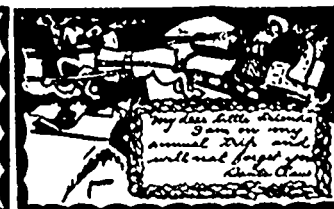 My dear little friends
I am on my
annual trip and
will not forget you
Santa Claus